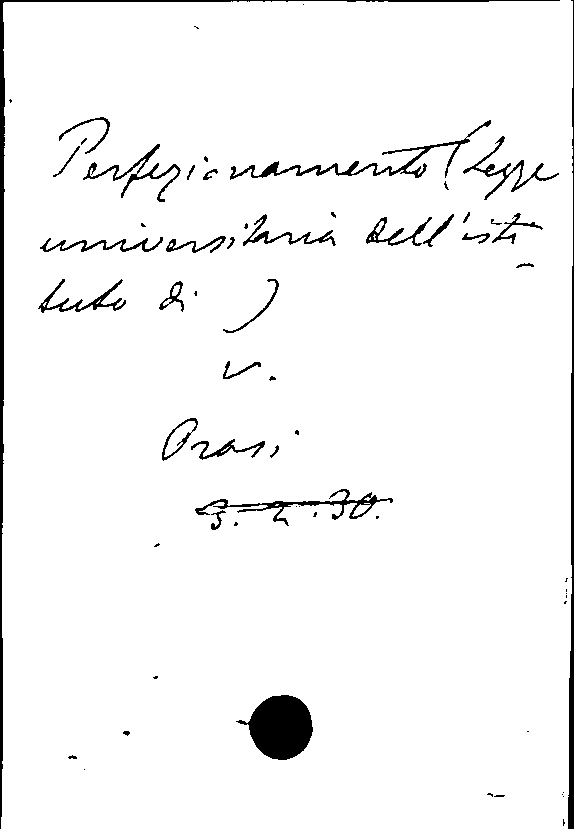 Perfezionamento (Legge
universitaria dell'isti-
tuto di )
v.
Orasi
3. 2. 30.